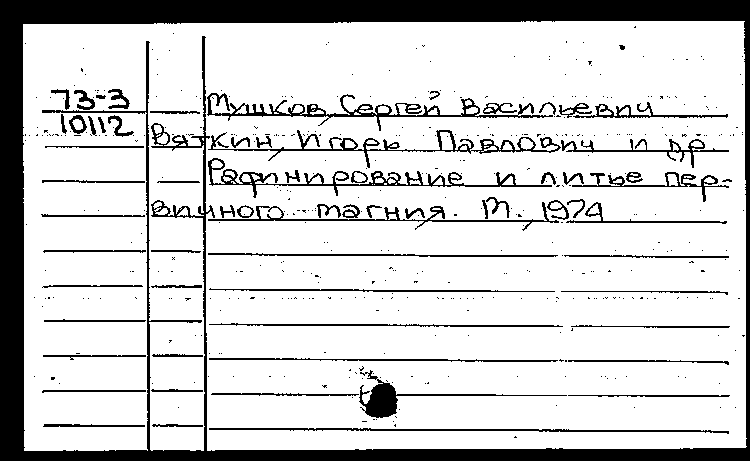 73-3
10112
Мушков, Сергей Васильевич
Вяткин, Игорь Павлович и др.
Рафинирование и литье пер-
вичного магния. М., 1974